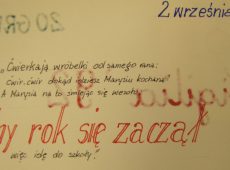 2 wrześnie
„Ćwierkają wróbelki od samego rana:
Ćwir, ćwir dokąd idziesz Marysiu kochana"
A Marysia na to śmiejąc się wesoło
ny rok się zaczął
więc idę do szkoły."